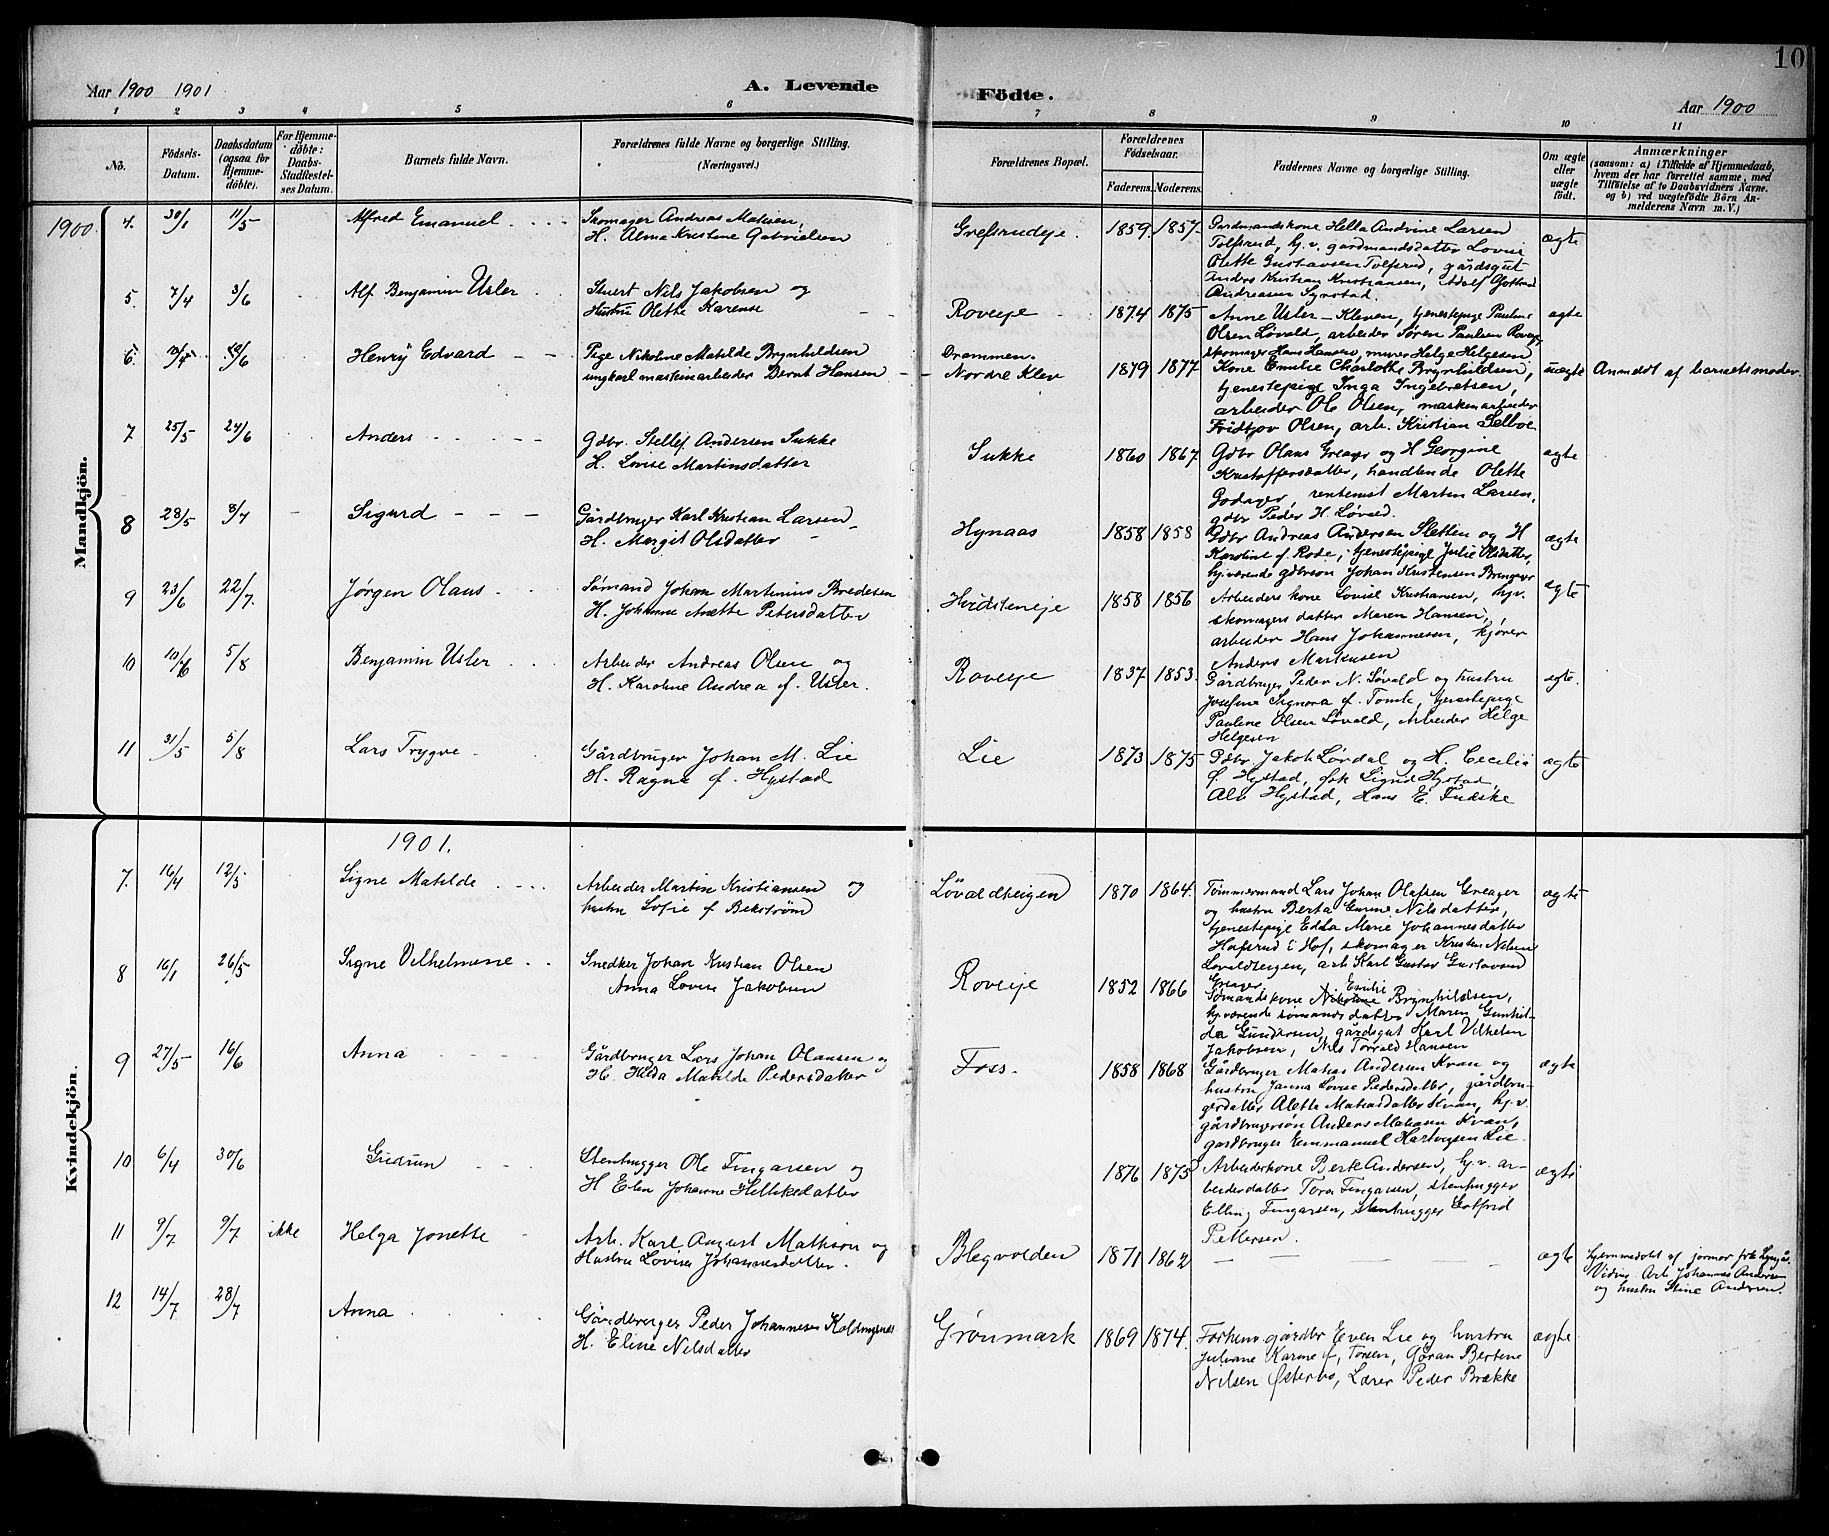 10
Aar 1900 1901
A. Levende
Födte.
Aar 1900
1 2 3 4 5 6 7 8 9 10 11
No.
Födsels-Datum.
Daabsdatum (ogsaa for Hjemmedöbte).
For Hjemmedöbte: Daabs-Stadfæstelses Datum.
Barnets fulde Navn.
Forældrenes fulde Navne og borgerlige Stilling. (Næringsvei.)
Forældrenes Bopæl.
Forældrenes Födselsaar.
Faderens. Moderens.
Faddernes Navne og borgerlige Stilling.
Om ægte eller uægte födt.
Anmærkninger
(saasom: a) i Tilfælde af Hjemmedaab, hvem der har forrettet samme, med Tilföielse af to Daabsvidners Navne. og b) ved uægtefödte Börn Anmelderens Navn m. V.)
Mandkjön.
1900
4. 30/1 11/5 Alfred Emanuel
Skomager Andreas Matisen,
H. Alma Kristine Gabrielsen
Grefsrudeje. 1859. 1857.
Gardmandskone Hella Andrine Larsen
Tolfsrud, hj.v. gardmandsdatter Lovise
Olette Gustavsen Tolfsrud, gårdsgut
Anders Kristian Kristiansen, Adolf Gottfred
Andreasen Synstad.
ægte
5. 7/4 3/6 Alf Benjamin Usler
Stuert Nils Jakobsen og
Hustru Olette Karense
Roveje 1874 1875
Anne Usler - Kleven, tjenestepige Pauline
Olsen Løvald, arbeider Søren Paulsen Roveje,
skomager Hans Hansen, murer Helge Helgesen
ægte
6. 10/6 Henry Edvard
Pige Nikoline Matilde Brynhildsen
ungkarl maskinarbeider Bernt Hansen
Drammen.
Nordre Klev 1879 1877
Kone Emilie Charlotte Brynhildsen,
tjenestepige Inga Ingebretsen,
arbeider Ole Olsen, maskinarbeider
Fridtjov Olsen, arb. Kristian Selboe
uægte Anmeldt af barnets moder.
7 25/5 24/6 Anders
Gdbr. Stellef Andersen Sukke
H. Lovise Martinsdatter
Sukke 1860 1867
Gdbr Olaus Greager og H Georgine
Kristoffersdatter, handlende Olette
Godager, rentenist Martin Larsen,
gdbr Peder H. Løvsed.
ægte
8 28/5 8/7 Sigurd
Gårdbruger Karl Kristian Larsen
H. Margit Olsdatter
Hynaas 1858 1858
Gdbr Andreas Andersen Sletten og H
Karoline f. Rode, tjenestepige Julie Olsdatter,
hj.værende gdbrsøn Johan Kristensen Brengager
ægte
9 23/6 22/7. Jørgen Olaus
Sømand Johan Martinius Bredesen
H. Johanne Anette Petersdatter
Hvidsteneje 1858 1856
Arbeiders kone Lovise Kristiansen, hj.v.
skomagers datter Maren Hansen,
arbeider Hans Johannesen, kjører
Anders Markusen
ægte
10 10/6 5/8 Benjamin Usler
Arbeider Andreas Olsen og
H. Karoline Andrea f. Usler.
Roveje 1837 1853.
Gårdbruger Peder N. Løvald og hustru
Josefine Signora f. Tomte, tjenestepige
Pauline Olsen Løvald, Arbeider Helge
Helgesen
ægte.
11 31/5 5/8 Lars Trygve
Gårdbruger Johan M. Lie
H. Ragna f. Hystad
Lie 1873 1875
Gdbr. Jakob Lørdal og H. Cecilie
f Hystad, frk Signe Hystad
Alb Hystad, Hans E. Fuske
ægte
Kvindekjön.
1901.
7. 16/4 12/5 Signe Matilde
Arbeider Martin Kristiansen og
hustru Sofie f Bekstrøm
Lövaldteigen 1870 1864.
Tømmermand Lars Johan Olafsen Greager
og hustru Berta Nilsdatter,
tjenestepige Edda Marie Johannesdatter
Hafsrud i Hof, skomager Kristen Nilsen
Lovaldteigen, arb. Karl Gustav Gustavsen
Greager
ægte
8 16/1 26/5 Signe Vilhelmine
Snedker Johan Kristian Olsen
Anna Lovise Jakobsen
Roveje 1852 1866
Emilie
Sømandskone Nikoline Brynhildsen,
hj.værende sømands datter Maren Gunhilda
Gundersen, gårdsgut Karl Vilhelm
Jakobsen, Nils Torvald Hansen
9 27/5 16/6 Anna
Gårdbruger Lars Johan Olausen og
H. Hilda Matilde Pedersdatter
Foss. 1858 1868
Gårdbruger Matias Andersen Kvan og
hustru Janna Lovise Pedersdatter, gårdbrugerdatter
Alette Matiasdatter Kvan, hj.v.
gårdbrugersøn Anders Matiasen Kvan,
gardbruger Emmanuel Hartvigsen Lie
ægte
10 6/4 30/6 Gudrun
Stenhugger Ole Fingarsen og
H Elen Johanne Hellikedatter
1876 1875
Arbeiderkone Berte Andersen, hj.v. arbeiderdatter
Tora Fingarsen, stenhugger
Elling Fingarsen, Stenhugger Gotfrid
Pettersen.
ægte
11 9/7 9/7 ikke Helga Jonette
Arb. Karl August Matison og
Hustru Lovise Johannesdatter.
Blegvolden 1871 1862
— — —
ægte
hjemmedøbt af jormor frk
Vidner Arb. Johannes Andersen
og hustru Stine Andersen.
12 14/7 28/7 Anna
Gårdbruger Peder Johannesen
H. Eline Nilsdatter
Grönmark 1869 1874.
Forhenv. gårdbr Even Lie og hustru
Juliane Karine f. Torsen, Gøran Bertine
Nilsen Østerbø, Lærer Peder Brække
ægte